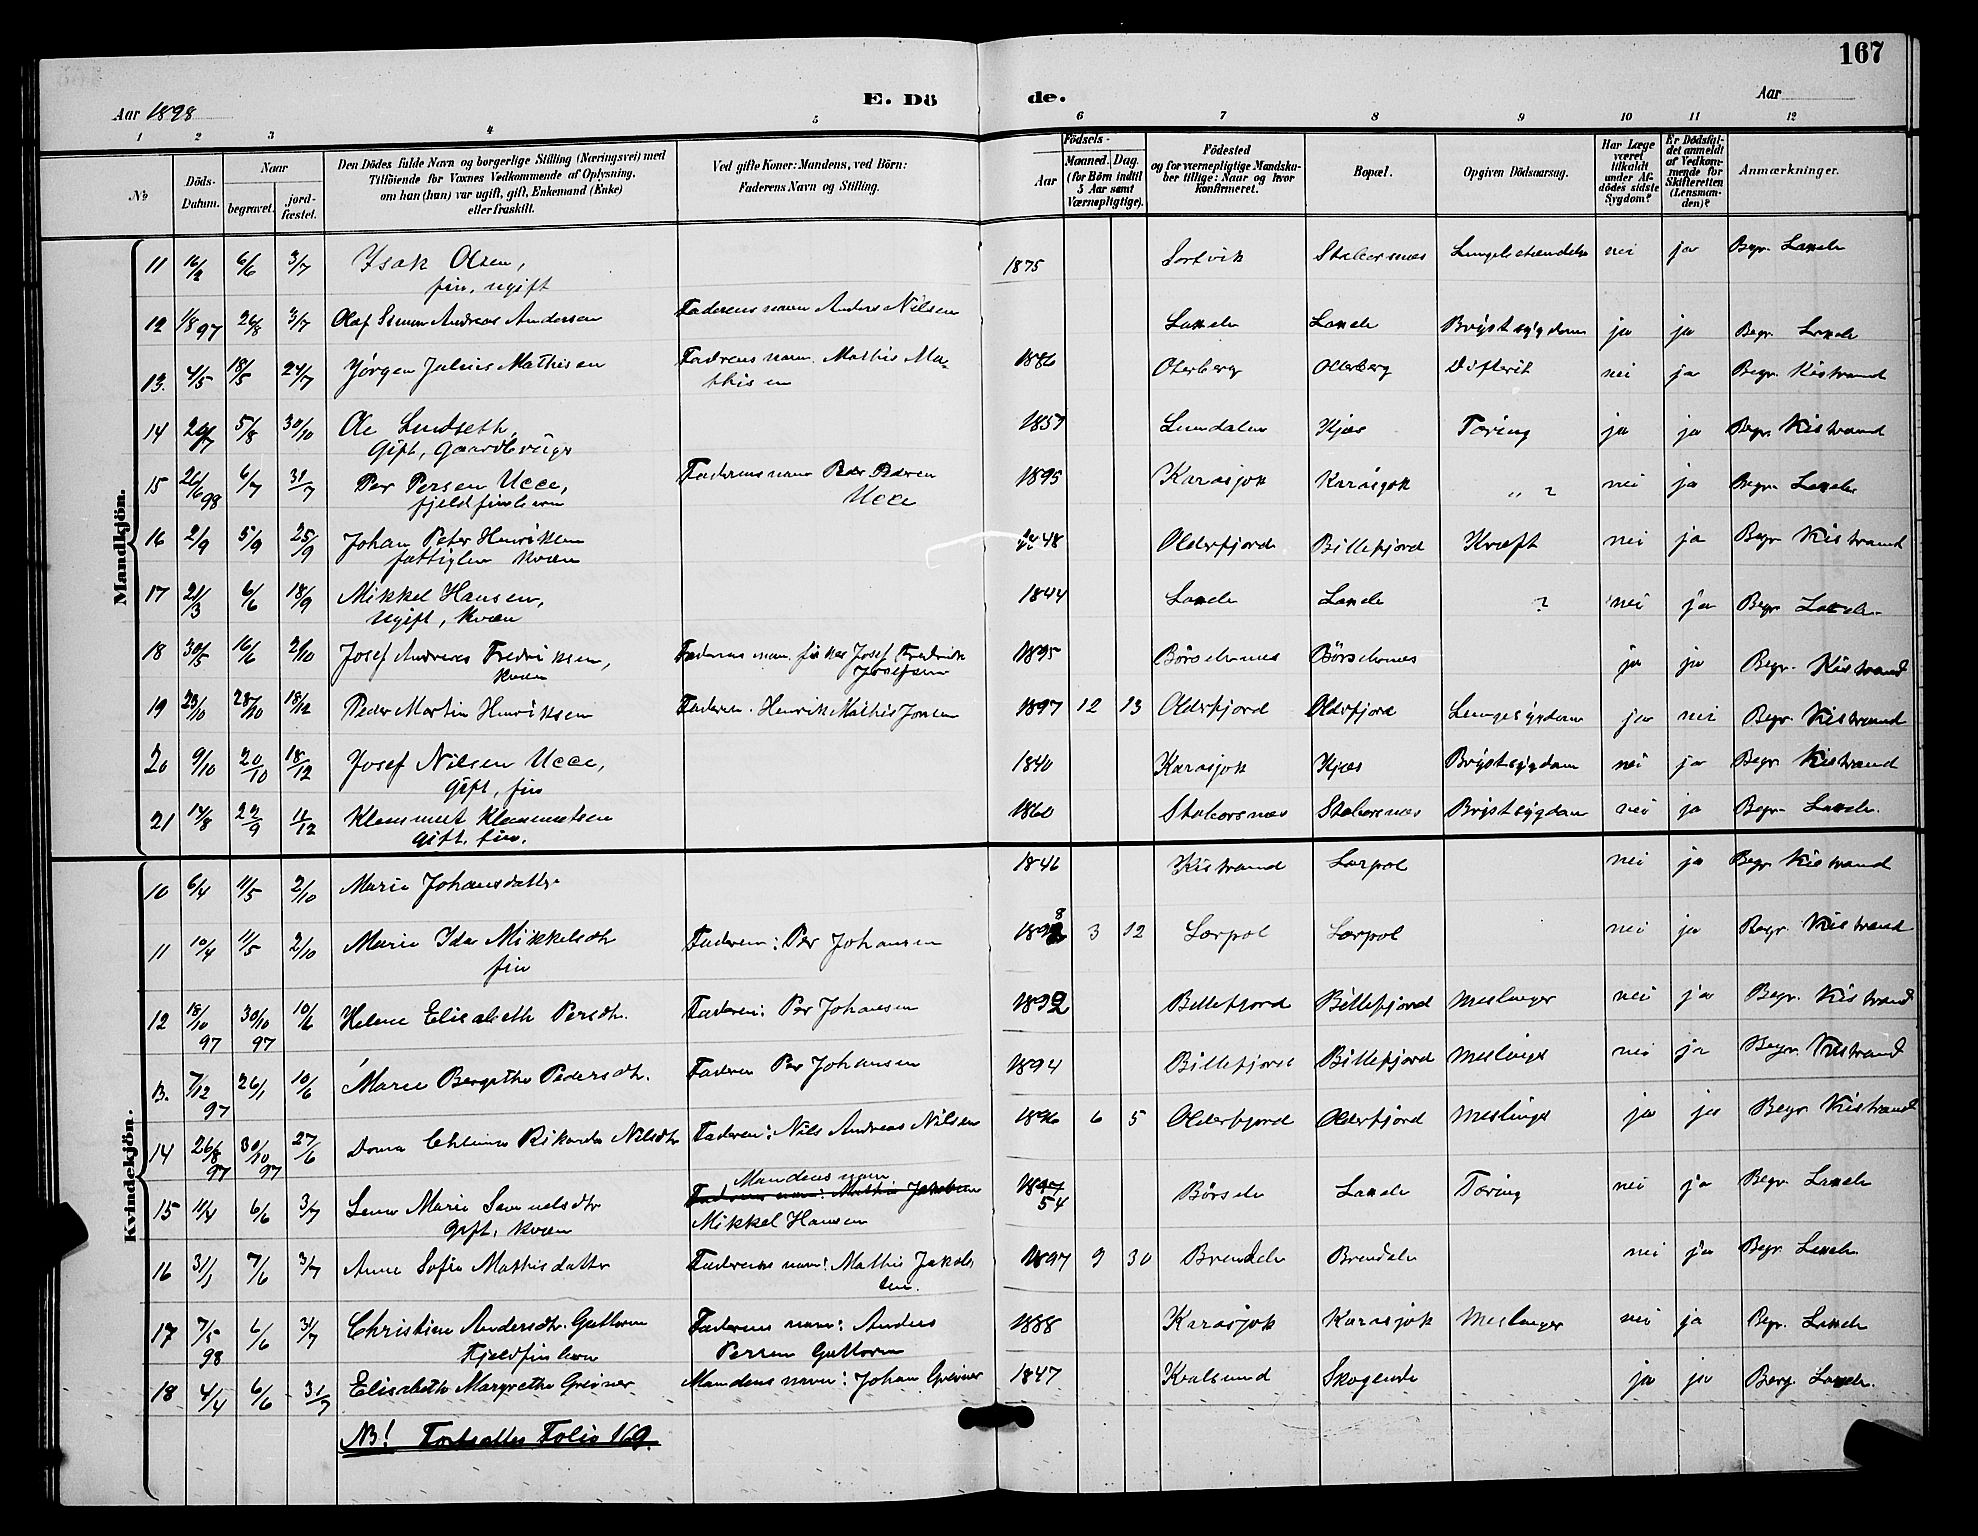 167
Aar 1898
E. Dö
de.
Aar
1 2 3 4 5 6 7 8 9 10 11 12
№
Döds-Datum.
Naar
begravet.
jord-fæstet.
Den Dödes fulde Navn og borgerlige Stilling (Næringsvei) med
Tilföiende for Voxnes Vedkommende af Oplysning,
om han (hun) var ugift, gift, Enkemand (Enke)
eller fraskilt.
Ved gifte Koner: Mandens, ved Börn:
Faderens Navn og Stilling.
Födsels-
Aar
Maaned. Dag.
(for Börn indtil
5 Aar samt
Værnepligtige).
Födested
og for værnepligtige Mandska-
ber tillige: Naar og hvor
konfirmeret.
Bopæl.
Opgiven Dödsaarsag.
Har Læge
været
tilkaldt
under Af-
dödes sidste
Sygdom?
Er Dödsfal-
det anmeldt
af Vedkom-
mende for
Skifteretten
(Lensman-
den)?
Anmærkninger.
Mandkjön.
11 16/2 6/6 3/7 Isak Olsen, 1875 Sortvik nei ja Begr. Laxelv
fin, ugift
12 1/8 97 26/8 3/7 Olaf Andreas Andersen Faderens navn Anders Nilsen Laxelv Laxelv Brystsygdom ja ja Begr. Laxelv
13. 4/5 18/5 24/7 Jørgen Julius Mathisen Faderens navn. Mathis Ma- 1886 Oterberg Oterberg Difterit nei ja Begr. Kistrand
thisen
14 5/8 30/10 Ole Lundseth, 1857 Lundalen Kjæs Tæring ja ja Begr. Kistrand
Gift,
15 26/6 98 6/7 31/7 Per Persen Ucce, Faderens navn Peder Pedersen 1895 Karasjok Karasjok " ? nei ja Begr. Laxelv
fjeldfinbarn Ucce
16 2/9 5/9 25/9 Johan Peter Henriksen 48 Olderfjord Billefjord Kræft nei ja Begr. Kistrand
fattiglem kvæn
17 21/3 6/6 18/9 Mikkel Hansen, 1844 Laxelv Laxelv ? nei ja Begr. Laxelv
ugift, kvæn
18 30/5 16/6 2/10 Josef Andreas Fredriksen, Faderens navn, fisker Josef Fredrik 1895 Börselvnes Börselvnes ja ja Begr. Kistrand
kvæn Josefsen
19 23/10 28/10 18/12 Peder Martin Henriksen Faderen. Henrik Mathis Jonsen 1897 12 13 Olderfjord Olderfjord Lungesygdom ja nei Begr. Kistrand
20 9/10 20/10 18/12 Josef Nilsen Ucce, 1840 Karasjok Kjæs Brystsygdom nei ja Begr. Kistrand
gift, fin
21 14/8 22/9 Klemmet Klemmetsen 1860 Staborsnes Staborsnes Brystsygdom nei ja Begr. Laxelv.
gift. fin.
Kvindekjön.
10 6/4 11/5 2/10 Marie Johansdatter 1846 Kistrand Lærpol nei ja Begr. Kistrand
11 10/4 11/5 2/10 Marie Ida Mikkelsdtr Faderen: Per Johansen 1898 3 12 Lærpol Lærpol nei ja Begr. Kistrand
fin
12 18/10 97 30/10 97 10/6 Helene Elisabeth Persdtr. Faderen: Per Johansen 1892 Billefjord Billefjord Meslinger nei ja Begr. Kistrand
13. 7/12 97 26/1 10/6 Marie Bergithe Pedersdtr. Faderen Per Johansen 1894 Billefjord Billefjord Meslinger nei ja Begr. Kistrand
14 26/8 97 30/10 97 27/6 Rikarda Nilsdtr Faderen: Nils Andreas Nilsen 1896 6 5 Olderfjord Olderfjord Meslinger ja ja Begr. Kistrand
Mandens navn
15 11/4 6/6 3/7 Lena Marie Samuelsdtr Faderens navn: Mathis Jakobsen 1897 Börselv Laxelv Tæring nei ja Begr. Laxelv
Gift, kvæn Mikkel Hansen 54
16 7/6 3/7 Anne Sofie Mathisdatter Faderens navn: Mathis Jakob- 1897 9 30 Brendelv Brendelv nei ja Begr. Laxelv
sen.
17 7/5 98 6/6 31/7 Christine Andersdtr. Guttorm Faderens navn: Anders 1888 Karasjok Karasjok Meslinger nei ja Begr. Laxelv
Fjeldfinbarn Persen Guttorm
18 4/4 6/6 31/7 Elisabeth Margrethe Greiner Mandens navn: Johan Greiner 1847 Kvalsund ja ja Begr. Laxelv.
NB! Fortsættes Folio 169.